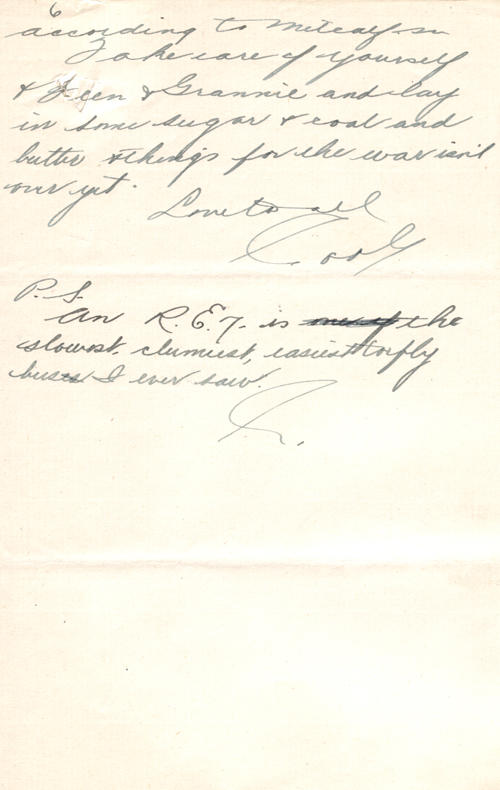 6
according to Metcalf
Take care of yourself
& & Grannie and lay
in some sugar & coal and
butter & things for the war isn't
over yet.
Love to all
P. S.
An R. E. 7. is the
slowest, clumiest, easiest to fly
buses I ever saw.